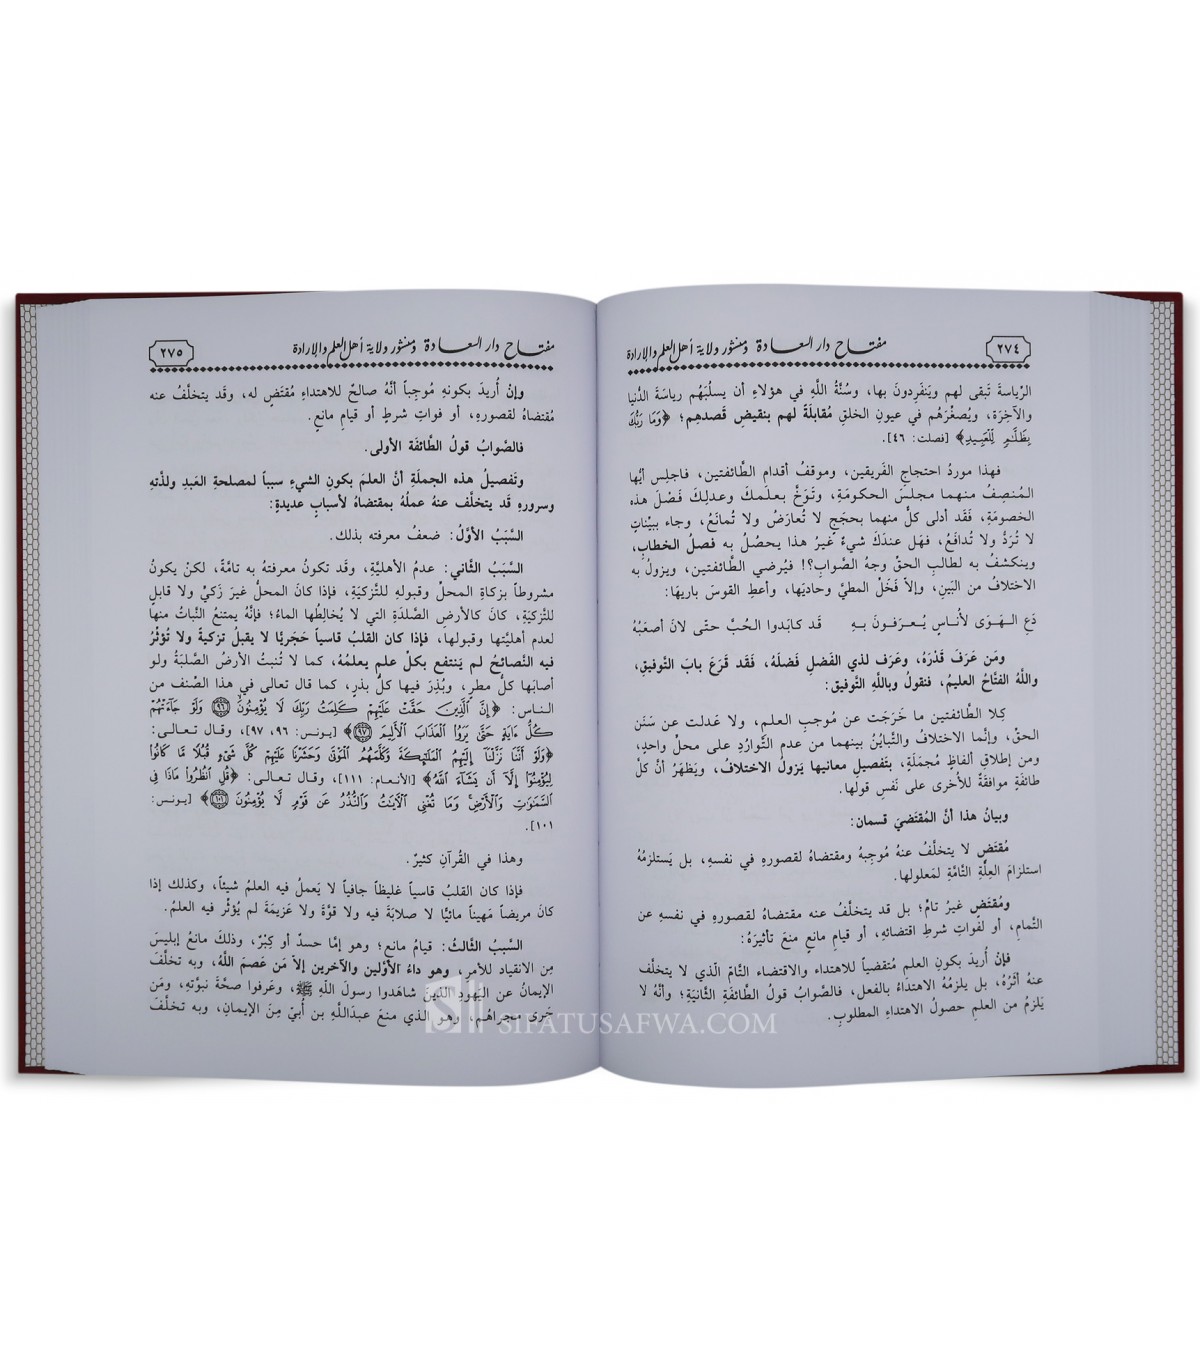 ٢٧٤
مفتاح دار السعادة ومنشور ولاية أهل العلم والإرادة
الرِّياسةَ تَبقى لهم ويَنفَرِدونَ بها، وسُنَّةُ اللَّهِ في هؤلاءِ أن يسلُبَهُم رياسةَ الدُّنيا
والآخِرَة، ويُصغِّرَهُم في عيونِ الخلقِ مُقابلَةً لهم بنقيضِ قَصدهِم؛ ﴿وَمَا رَبُّكَ
بِظَلَّٰمٍ لِّلْعَبِيدِ﴾ [فصلت: ٤٦].
فهذا موردُ احتجاجِ الفَريقين، وموقفُ أقدامِ الطَّائفتين، فاجلِس أيُّها
المُنصِفُ منهما مجلسَ الحكومَةِ، وتَوَخَّ بعلمكَ وعدلِكَ فَصْلَ هذه
الخصومَةِ، فَقَد أدلى كلٌّ منهما بحججٍ لا تُعارَضُ ولا تُمانَعُ، وجاء ببيِّناتٍ
لا تُرَدُّ ولا تُدافَعُ، فهَل عندَكَ شيءٌ غيرُ هذا يحصُلُ به فَصلُ الخطابِ،
وينكشفُ به لطالبِ الحقِّ وجهُ الصَّوابِ؟! فيُرضي الطَّائفتين، ويزولُ به
الاختلافُ من البَينِ، وإلاّ فَخَلِّ المطيَّ وحاديَها، وأعطِ القَوسَ باريَها:
دَعِ الـهَـوَى لأُنـاسٍ يُـعـرَفـونَ بـهِ قَد كابَدوا الحُبَّ حتّى لانَ أصعَبُهُ
ومَن عَرَفَ قَدْرَهُ، وعَرَفَ لذي الفَضلِ فَضلَهُ، فَقَد قَرَعَ بابَ التَّوفيقِ،
واللَّهُ الفتَّاحُ العليمُ، فنقولُ وباللَّهِ التَّوفيق:
كِلا الطَّائفتين ما خَرَجَت عن مُوجبِ العلمِ، ولا عَدلت عن سَنَنِ
الحقِّ، وإنَّما الاختلافُ والتَّبايُنُ بينهما من عدمِ التَّوارُدِ على محلٍّ واحدٍ،
ومن إطلاقِ ألفاظٍ مُجمَلَةٍ، بتَفصيلِ معانيها يَزولُ الاختلاف، ويَظهَرُ أنَّ كلَّ
طائفةٍ موافقَةٌ للأُخرى على نَفسِ قولها.
وبيانُ هذا أنَّ المُقتَضيَ قسمان:
مُقتَضٍ لا يتخلَّفُ عنهُ مُوجبهُ ومقتضاهُ لقصورهِ في نفسهِ، بل يَستلزمُهُ
استلزامَ العِلَّةِ التَّامَّةِ لمَعلولها.
ومُقتَضٍ غيرُ تامٍّ؛ بل قد يتخلَّفُ عنه مقتضاهُ لقصورهِ في نفسهِ عن
التَّمامِ، أو لفَواتِ شرطِ اقتضائهِ، أو قيامِ مانعٍ منعَ تأثيرَهُ:
فإنْ أُريدَ بكونِ العلمِ مُقتَضياً للاهتداءِ والاقتضاءِ التَّامِّ الَّذي لا يتخلَّف
عنهُ أثرُهُ، بل يلزمُهُ الاهتداءُ بالفعلِ، فالصَّوابُ قولُ الطَّائفةِ الثَّانية؛ وأنَّهُ لا
يَلزمُ من العلمِ حصولُ الاهتداءِ المطلوبِ.
٢٧٥
مفتاح دار السعادة ومنشور ولاية أهل العلم والإرادة
وإنْ أُريدَ بكونهِ مُوجِباً أنَّهُ صالحٌ للاهتداءِ مُقتَضٍ له، وقَد يتخلَّفُ عنه
مُقتضاهُ لقصورهِ، أو فواتِ شرطٍ أو قيامِ مانعٍ.
فالصَّوابُ قولُ الطَّائفة الأولى.
وتَفصيلُ هذه الجملَةِ أنَّ العلمَ بكونِ الشيءِ سبباً لمصلحةِ العَبدِ ولذَّتهِ
وسرورهِ قَد يتخلَّف عنهُ عملُهُ بمقتضاهُ لأسبابٍ عديدةٍ:
السَّبَبُ الأوَّلُ: ضعفُ معرفته بذلك.
السَّبَبُ الثَّاني: عدمُ الأهليَّةِ، وقَد تكونُ معرفتهُ به تامَّةً، لكنْ يكونُ
مشروطاً بزكاةِ المحلِّ وقبولهِ للتَّزكيَةِ، فإذا كانَ المحلُّ غيرَ زَكيٍّ ولا قابلٍ
للتَّزكيَةِ، كانَ كالأرضِ الصَّلدَةِ التي لا يُخالِطُها الماءُ؛ فإنَّهُ يمتنعُ النَّباتُ منها
لعدم أهليَّتها وقبولها، فإذا كان القلبُ قاسياً حَجَريًّا لا يقبلُ تزكيةً ولا تُؤثِّرُ
فيه النَّصائحُ لم يَنتفع بكلِّ علمٍ يعلمُهُ، كما لا تُنبتُ الأرضُ الصَّلبَةُ ولو
أصابَها كلُّ مطرٍ، وبُذِرَ فيها كلُّ بذرٍ، كما قال تعالى في هذا الصِّنف من
النـاس: ﴿إِنَّ ٱلَّذِينَ حَقَّتْ عَلَيْهِمْ كَلِمَتُ رَبِّكَ لَا يُؤْمِنُونَ ۝٩٦ وَلَوْ جَآءَتْهُمْ
كُلُّ ءَايَةٍ حَتَّىٰ يَرَوُا۟ ٱلْعَذَابَ ٱلْأَلِيمَ ۝٩٧﴾ [يونس: ٩٦، ٩٧]، وقال تـعـالـى:
﴿وَلَوْ أَنَّنَا نَزَّلْنَآ إِلَيْهِمُ ٱلْمَلَٰٓئِكَةَ وَكَلَّمَهُمُ ٱلْمَوْتَىٰ وَحَشَرْنَا عَلَيْهِمْ كُلَّ شَىْءٍ قُبُلًا مَّا كَانُوا۟
لِيُؤْمِنُوٓا۟ إِلَّآ أَن يَشَآءَ ٱللَّهُ﴾ [الأنعام: ١١١]، وقال تـعـالـى: ﴿قُلِ ٱنظُرُوا۟ مَاذَا فِى
ٱلسَّمَٰوَٰتِ وَٱلْأَرْضِ وَمَا تُغْنِى ٱلْءَايَٰتُ وَٱلنُّذُرُ عَن قَوْمٍ لَّا يُؤْمِنُونَ ۝١٠١﴾ [يـونس:
١٠١].
وهذا في القُرآنِ كثيرٌ.
فإذا كان القلبُ قاسياً غليظاً جافياً لا يَعملُ فيه العلمُ شيئاً، وكذلك إذا
كانَ مريضاً مَهيناً مائيًّا لا صلابَةَ فيه ولا قوَّةَ ولا عَزيمَةَ لم يُؤثِّر فيه العلمُ.
السَّبَبُ الثَّالثُ: قيامُ مانعٍ؛ وهو إمَّا حسدٌ أو كِبْرٌ، وذلكَ مانعُ إبليسَ
مِن الانقيادِ للأمرِ، وهو داءُ الأوَّلين والآخرين إلاّ مَن عَصمَ اللَّهُ، وبه تخلَّفَ
الإيمانُ عن اليَهودِ الذينَ شاهَدوا رسولَ اللَّهِ ﷺ، وعَرفوا صحَّةَ نبوَّتهِ، ومَن
جَرى مجراهُم، وهو الذي منعَ عبدَاللَّهِ بن أُبيٍّ مِنَ الإيمانِ، وبه تخلَّفَ
SIFATUSAFWA.COM